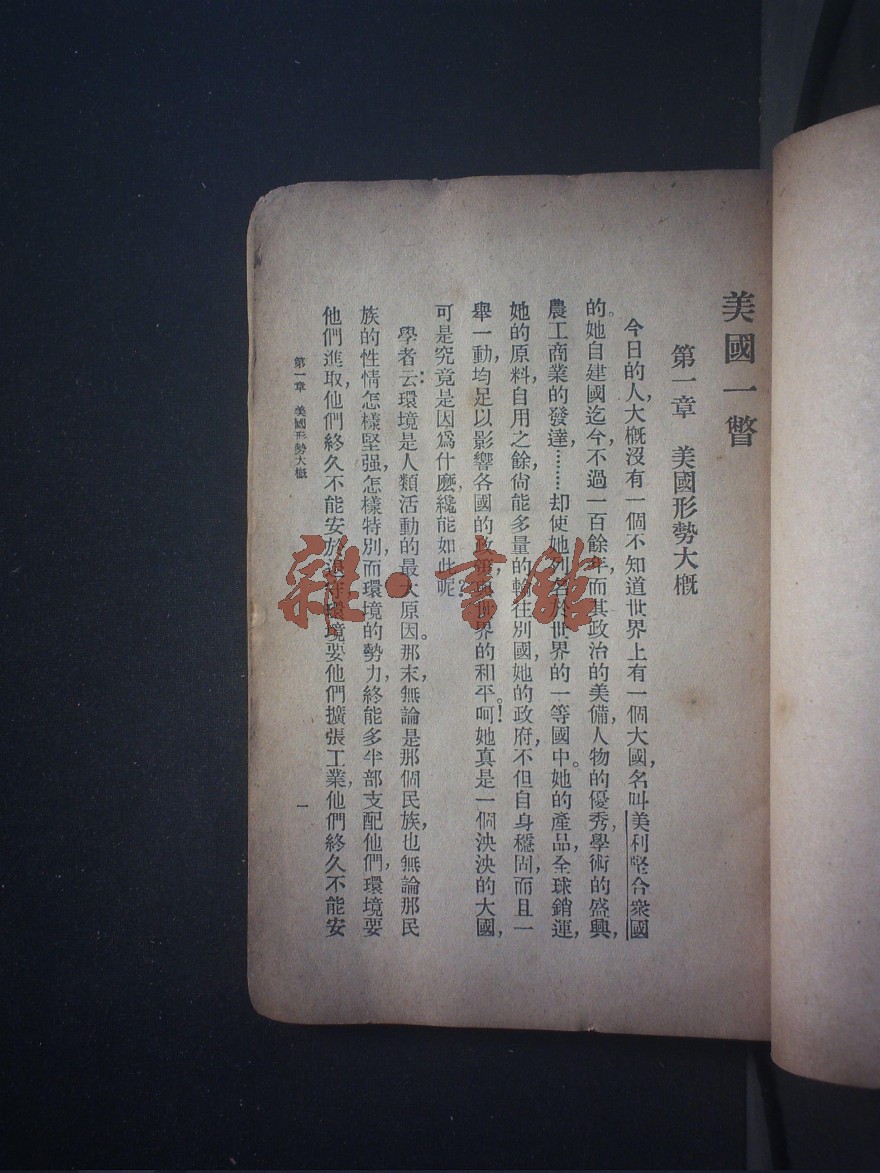 美國一瞥
第一章 美國形勢大概
今日的人,大概沒有一個不知道世界上有一個大國,名叫美利堅合衆國
的。她自建國迄今,不過一百餘年,而其政治的美備,人物的優秀,學術的盛興,
農工商業的發達,……却使她列名於世界的一等國中。她的產品,全球銷運,
她的原料,自用之餘,尙能多量的輸往別國,她的政府,不但自身穩固,而且一
舉一動,均足以影響各國的政與世界的和平。!呵她真是一個泱泱的大國,
可是究竟是因爲什麽,纔能如此呢?
學者云:環境是人類活動的最大原因。那末,無論是那個民族,也無論那民
族的性情怎樣堅强,怎樣特別,而環境的勢力,終能多半部支配他們,環境要
他們進取,他們終久不能安於退守,環境要他們擴張工業,他們終久不能安
第一章 美國形勢大概
一
雜·書館